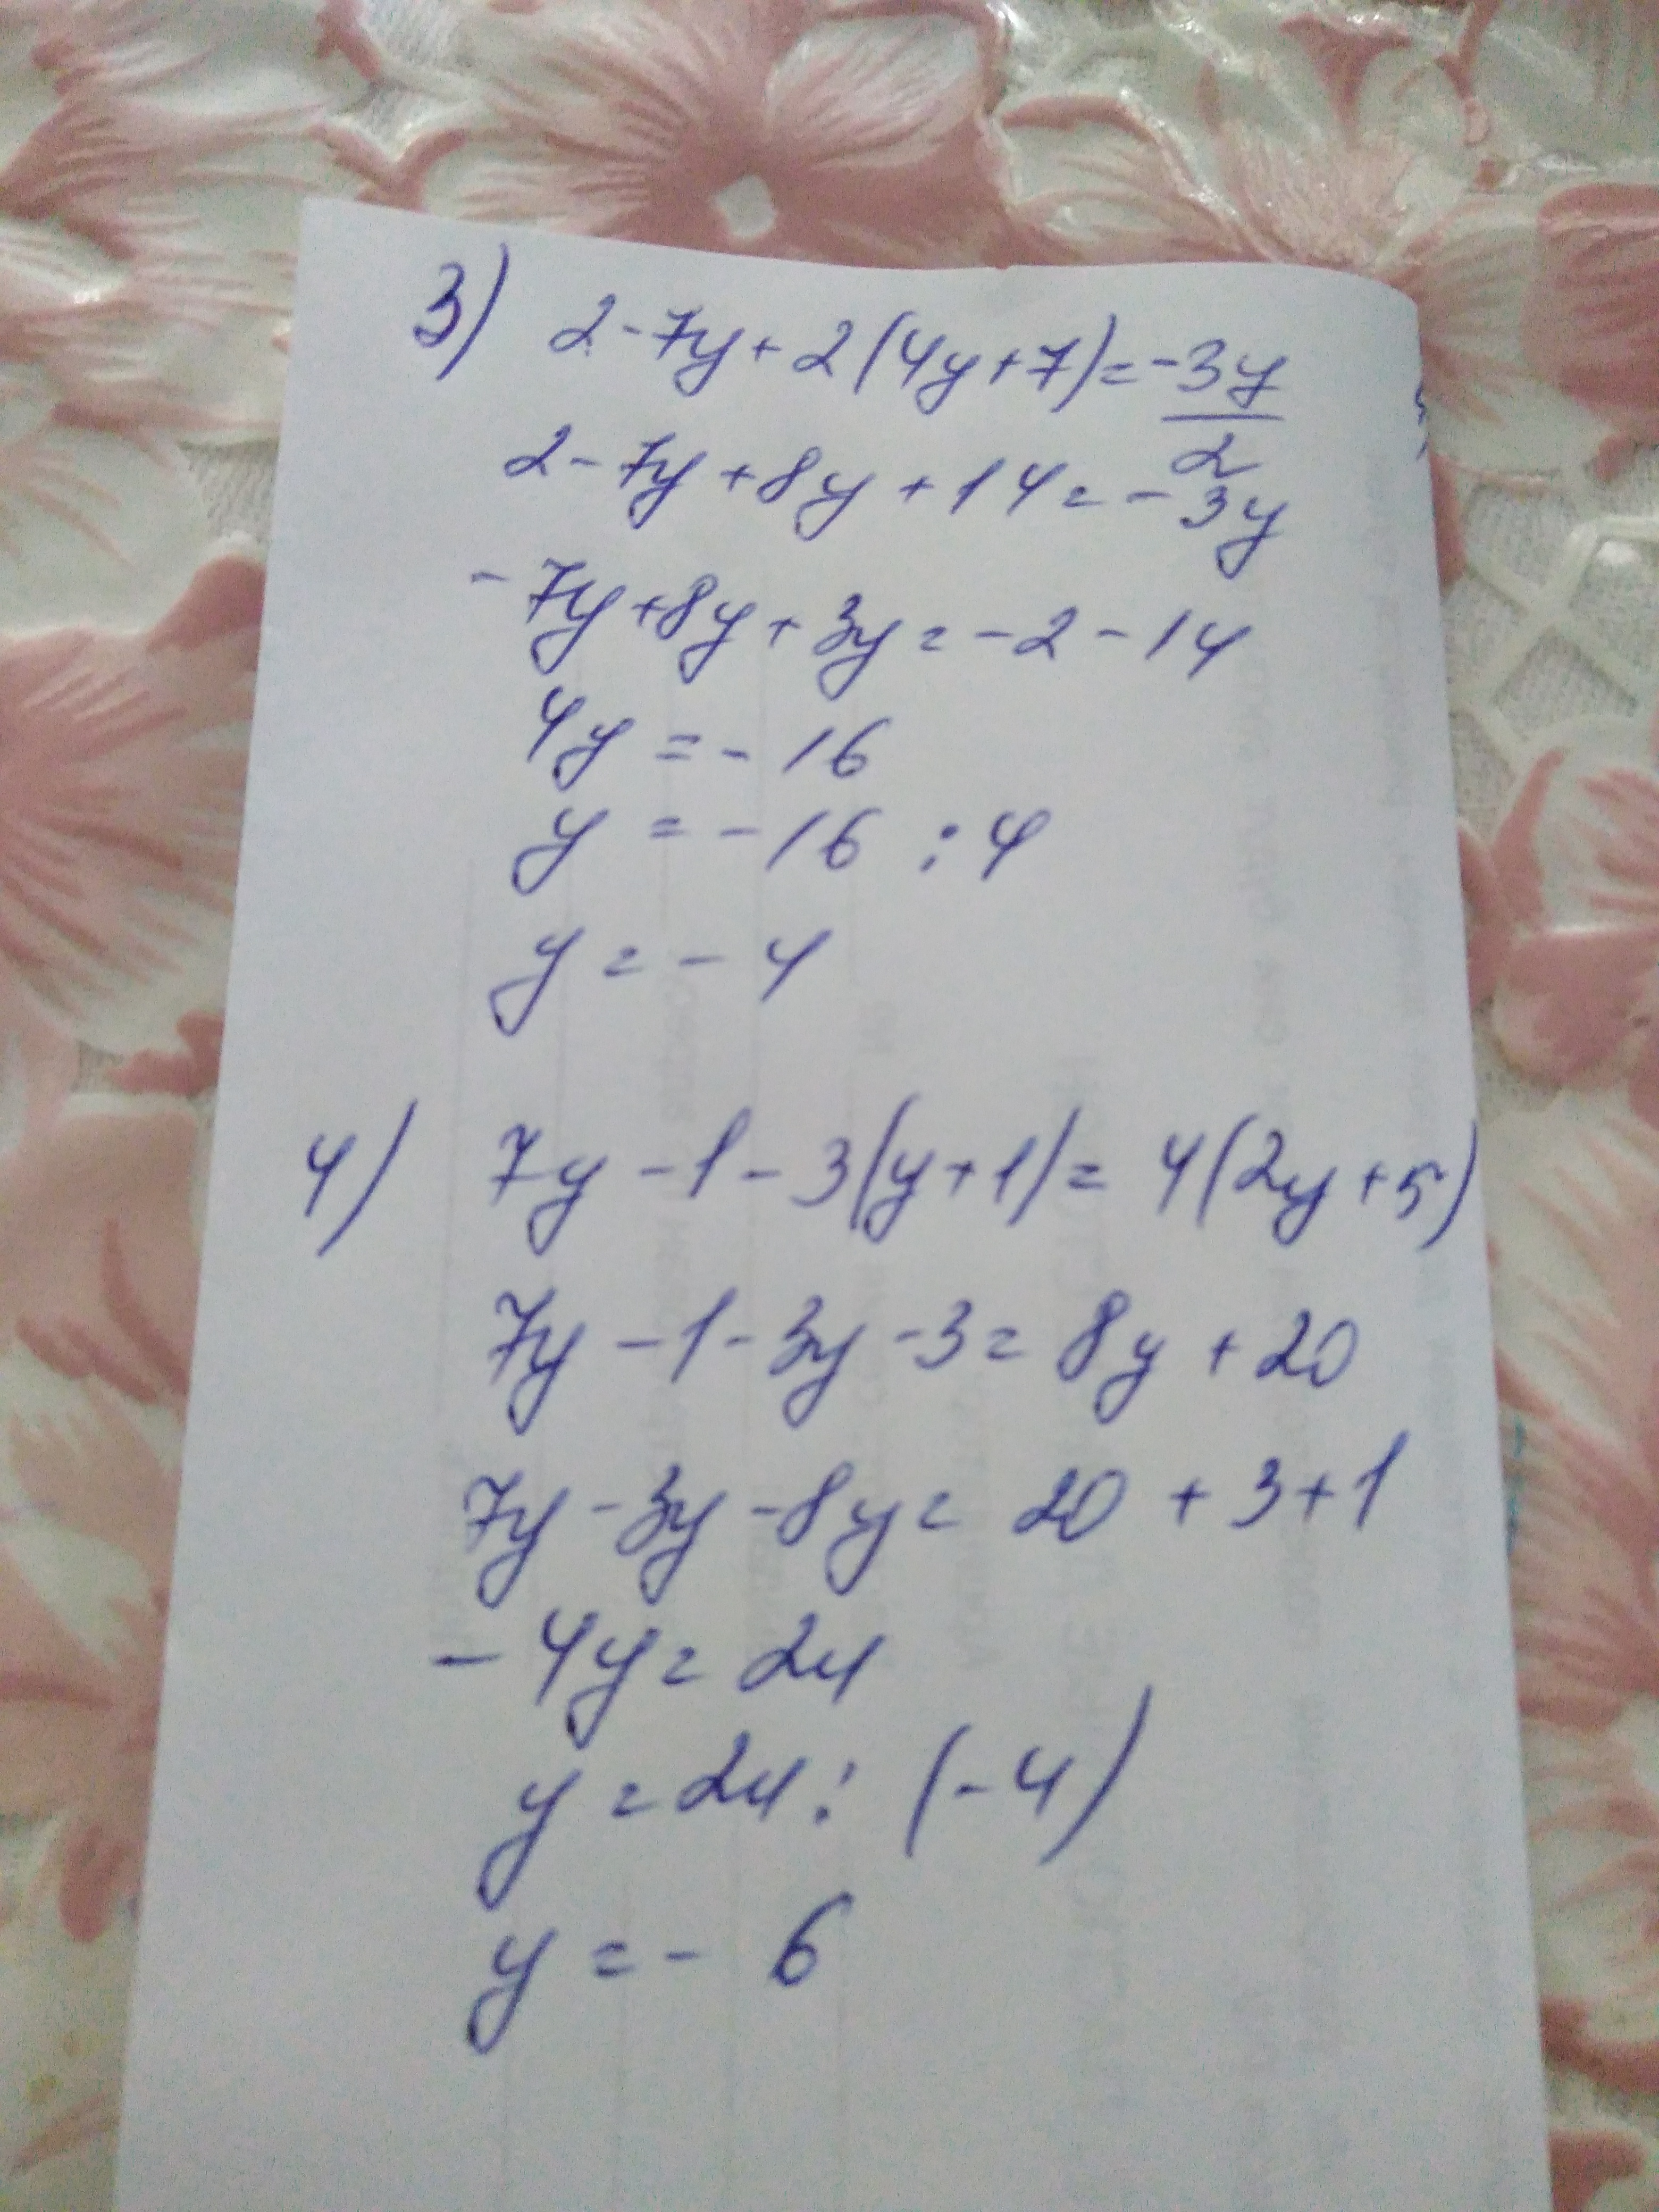 3) 2-7y+2(4y+7)=-3y/2
2-7y+8y+14=-3y
-7y+8y+3y=-2-14
4y=-16
y=-16:4
y=-4
4) 7y-1-3(y+1)=4(2y+5)
7y-1-3y-3=8y+20
7y-3y-8y=20+3+1
-4y=24
y=24:(-4)
y=-6